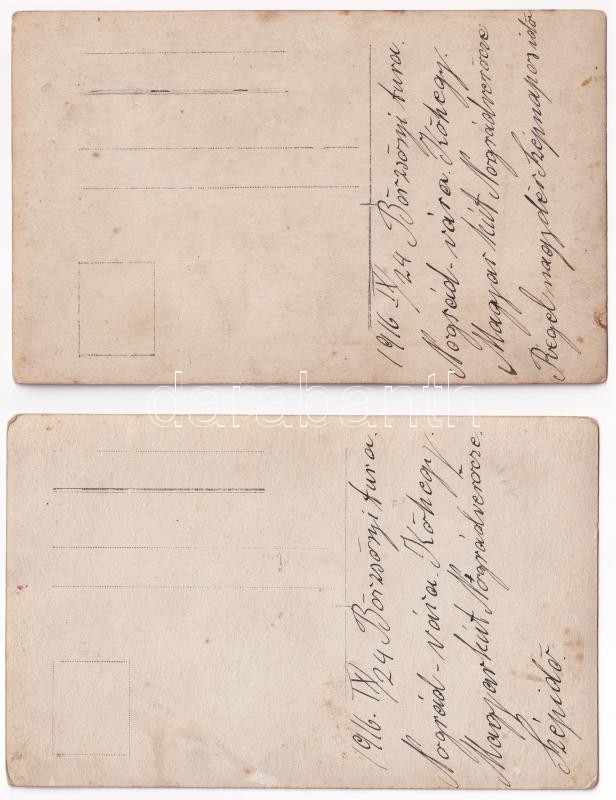 1916 IX/24 Börzsönyi tura.
Nográd-vára. Kőhegy.
Magyar kút Nográdverőcze
Reggel nagy dér szép napos idő
darabanth
1916. IX/24 Börzsönyi tura.
Nográd-vára. Kőhegy.
Magyarkút Nógrádverőcze.
Szép idő.